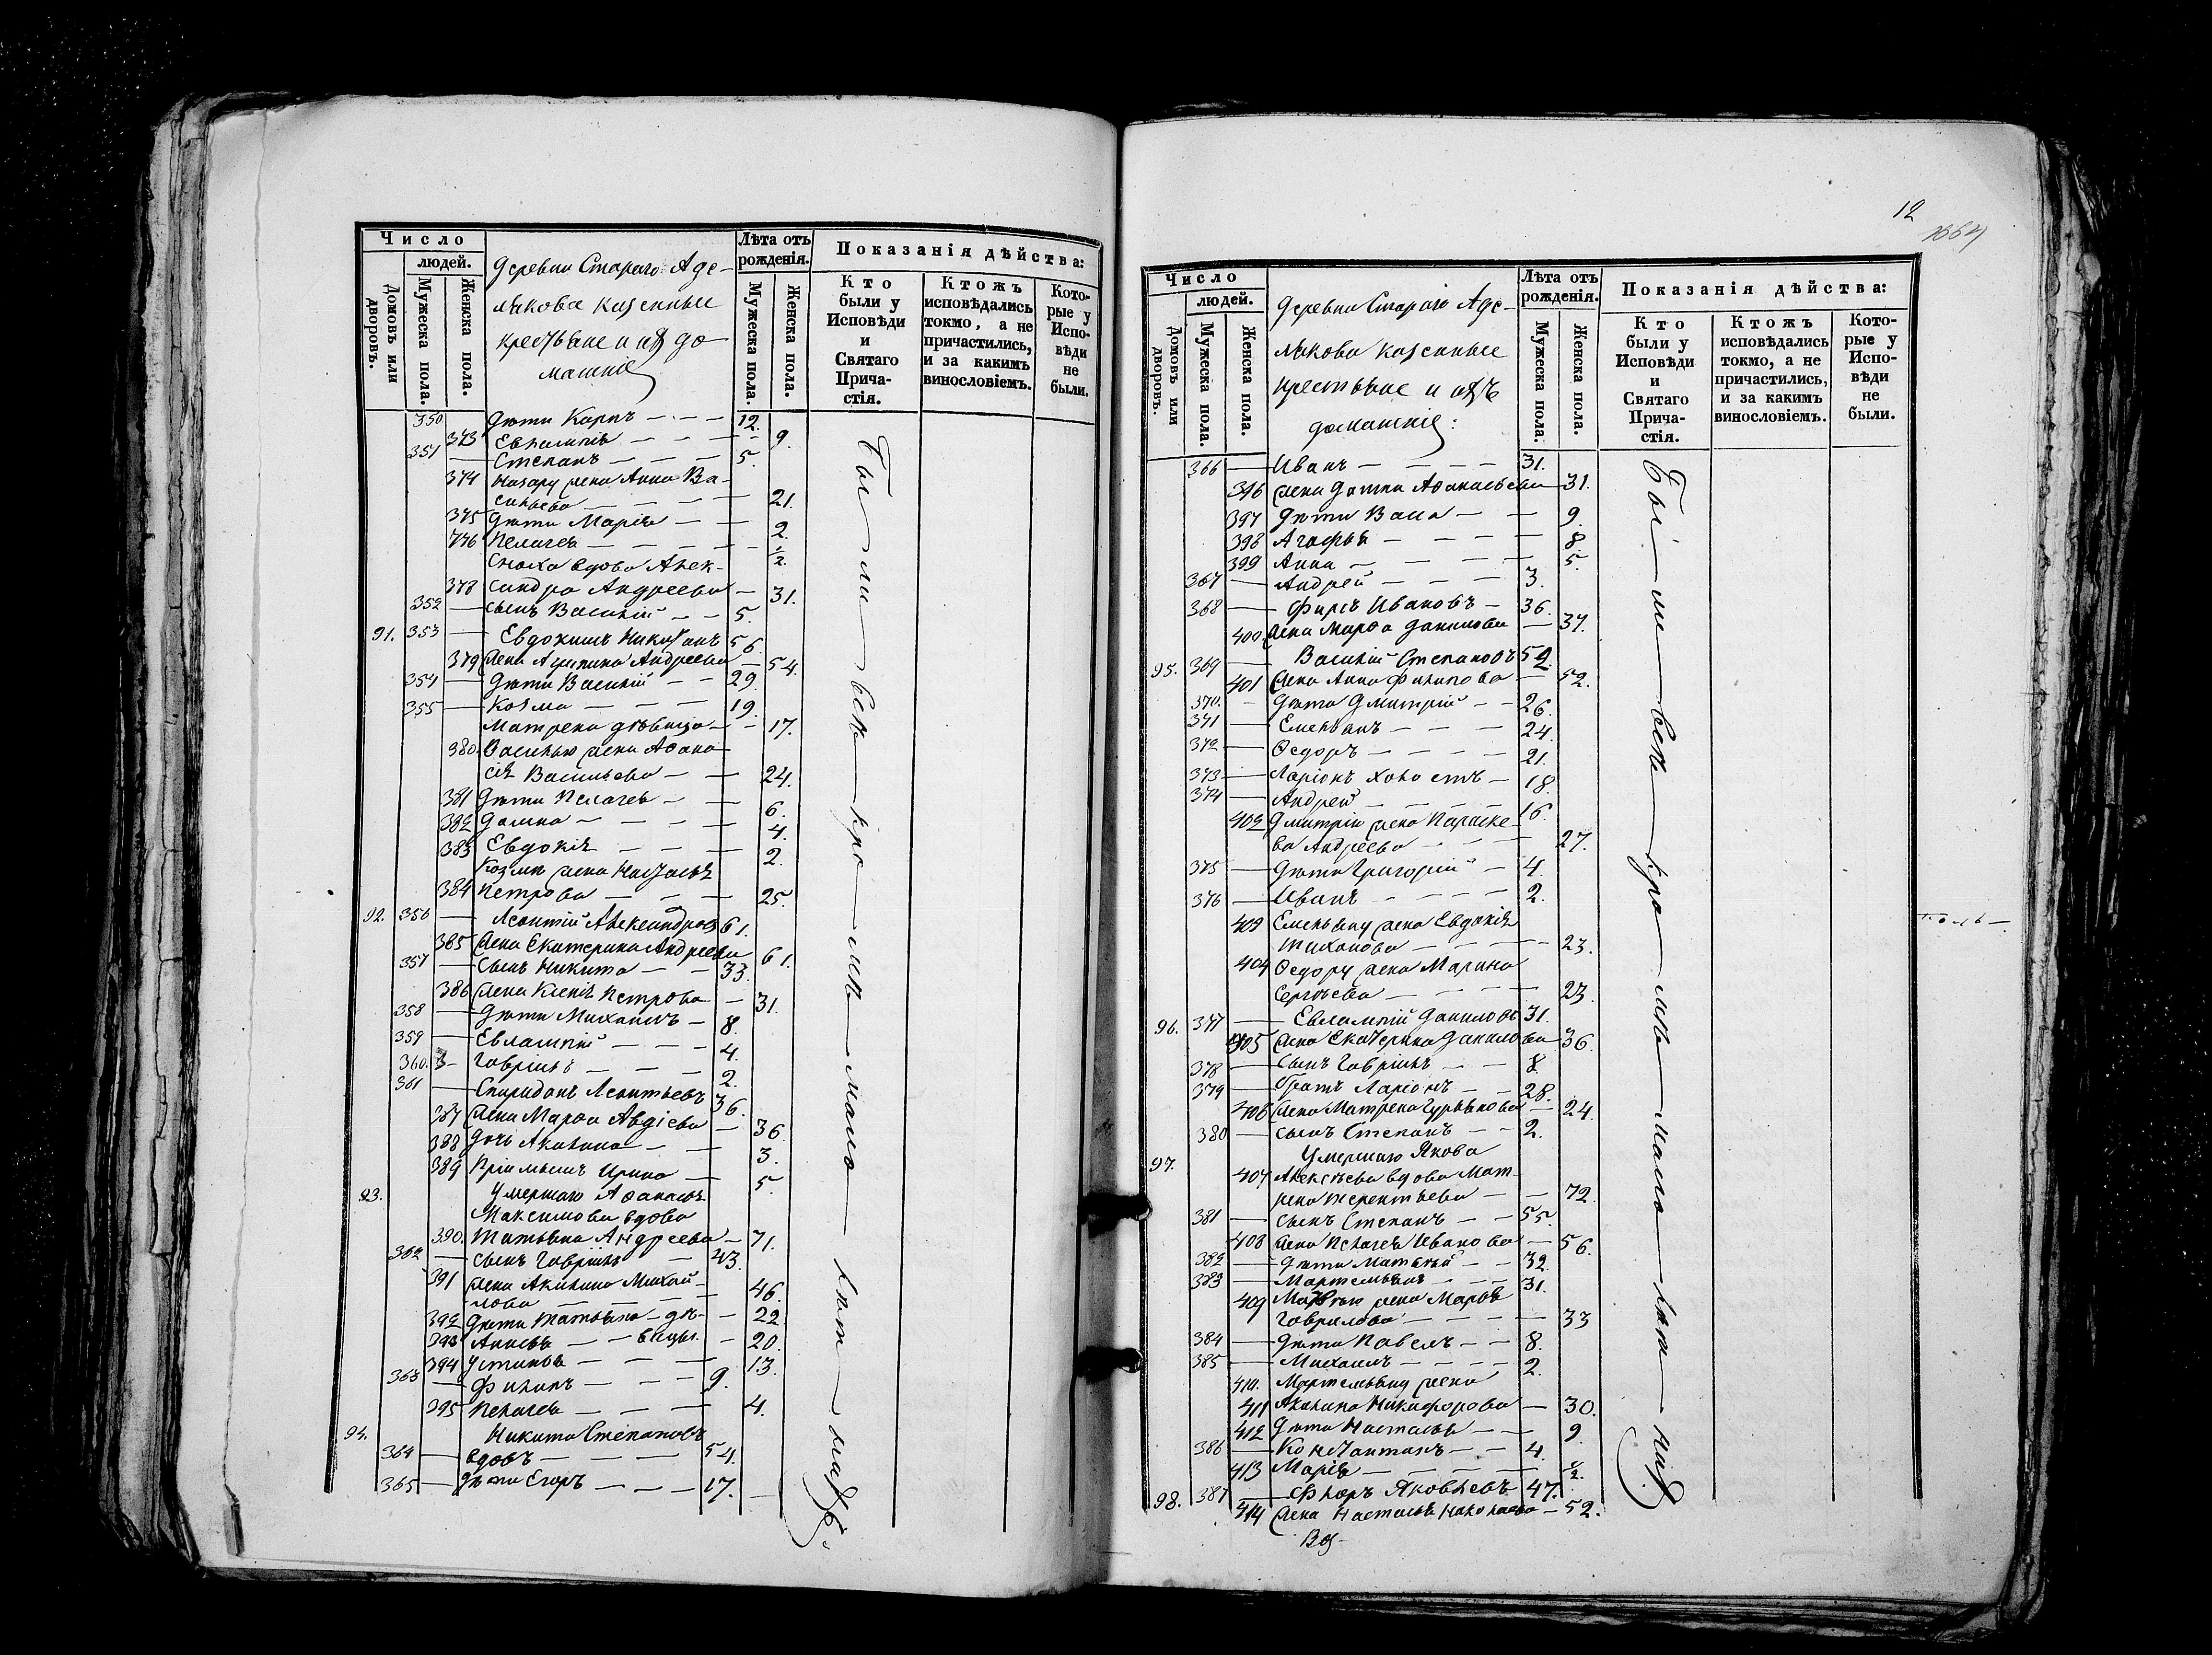 Число
людей.
Домовъ или дворовъ.
Мужеска пола.
Женска пола.
Деревни Стараго Аде-
лякова казенные
крестьяне и ихъ до-
машніе
Лѣта отъ рожденія.
Мужеска пола.
Женска пола.
Показанія дѣйства:
Кто были у Исповѣди и Святаго Прича-стія.
Ктожъ исповѣдались токмо, а не причастились, и за какимъ винословіемъ.
Кото-рые у Испо-вѣди не были.
350 Дѣти Карпъ — 12.
373 Евлампія — 9.
351 Степанъ — 5.
374 Назару жена Анна Ва-
сильева — 21.
375 Дѣти Марія — 2.
376 Пелагея — ½.
Сноха вдова Алек-
378 сандра Андреева — 31.
352 сынъ Василій — 5.
91. 353 Евдокимъ 56.
379 Жена Агрипина Андреева — 54.
354 Дѣти Василій — 29.
355 Козма — 19.
Матрена дѣвица — 17.
380. Василью жена Афана-
сія Васильева — 24.
381 Дѣти Пелагея — 6.
382 Домна — 4.
383 Евдокія — 2.
Козмѣ жена Настасья
384 Петрова — 25.
92. 356 Леонтій Александровъ 61.
385 Жена Екатерина Андреева 61.
357 Сынъ Никита — 33.
386 Жена Ксенія Петрова — 31.
358 Дѣти Михаилъ — 8.
359 Евлампій — 4.
360. Гавріилъ — 2.
361 Спиридонъ Леонтьевъ 36.
387 Жена Марфа Авдіева — 36.
388 Дочь Акилина — 3.
389 Пріимышъ Ирина — 5.
93. Умершаго Афанасья
Максимова вдова
390. Татьяна Андреева — 71.
362 сынъ Гавріилъ — 43.
391 жена Акилина Михай-
лова — 46.
392 Дѣти Татьяна — дѣ- — 22.
393 Анисья — вицы. — 20.
394 Устинья — 13.
363 Филипъ — 9.
395 Пелагея — 4.
94. Никита Степановъ
364 вдовъ — 54.
365 Дѣти Егоръ — 17.
Бы — ли — всѣ — кро — мѣ — мало — лѣт — нихъ.
12
Число
людей.
Домовъ или дворовъ.
Мужеска пола.
Женска пола.
Деревни Стараго Аде-
лякова казенные
крестьяне и ихъ
домашніе:
Лѣта отъ рожденія.
Мужеска пола.
Женска пола.
Показанія дѣйства:
Кто были у Исповѣди и Святаго Прича-стія.
Ктожъ исповѣдались токмо, а не причастились, и за какимъ винословіемъ.
Кото-рые у Испо-вѣди не были.
366 Иванъ — 31.
396 жена Домна Афанасьева — 31.
397 Дѣти Васа — 9.
398 Агафья — 8
399 Анна — 5.
367 Андрей — 3.
368 Фирсъ Ивановъ — 36.
400. Жена Марфа Данилова — 37.
95. 369 Василій Степановъ 52.
401 Жена Анна Филипова — 52.
370. Дѣти Дмитрій — 26.
371 Емельянъ — 24.
372 Ѳедоръ — 21.
373 Ларіонъ холостъ — 18.
374 Андрей — 16.
402 Дмитрію жена Параске-
ва Андреева — 27.
375 Дѣти Григорій — 4.
376 Иванъ — 2.
403 Емельяну жена Евдокія
Тиханова — 23.
404 Ѳедору жена Марина
Сергѣева — 23.
96. 377 Евлампій Даниловъ 31.
405 Жена Екатерина Данилова 36.
378 Сынъ Гавріилъ — 8
379 Братъ Ларіонъ — 28.
406 Жена Матрена Гурьянова — 24.
380 сынъ Степанъ — 2.
97. Умершаго Якова
407 Алексѣева вдова Мат-
рена Терентьева — 72.
381 сынъ Степанъ — 55.
408 Жена Пелагея Иванова — 56.
382 Дѣти Матвей — 32.
383 Мартемьянъ — 31.
409 Матвею жена Марья
Гаврилова — 33
384 Дѣти Павелъ — 8.
385 Михаилъ — 2.
410. Мартемьяну жена
411 Акилина Никифорова — 30.
412 Дѣти Настасья — 9
386 Константинъ — 4.
413 Марія — ½.
98. 387 Флоръ Яковлевъ 47.
414 Жена Настасья Николаева — 52.
Бы — ли — всѣ — кро — мѣ — мало — лѣт — нихъ